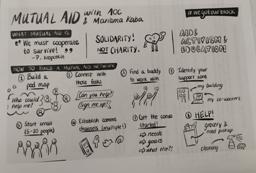 MUTUAL AID with AOC
& Mariama Kaba
IF WE GOT OUR BLOCK
WHAT MUTUAL AID IS
"We must cooperate
to survive!"
- P. Kropotkin
SOLIDARITY!
NOT CHARITY.
AIDS
ACTIVISM &
EDUCATION
HOW TO BUILD A MUTUAL AID NETWORK
① Build a
pod map
Who could
help me?
② Start small
(5-20 people)
③ Connect with
those folks
Can you help?
Sign me up!
④ Establish comms
channels (multiple!)
⑤ Find a buddy
to work with
⑥ Get the convo
started!
→ needs
→ goals
→ what else?!
⑦ Identify your
support zone
my building
my co-workers
⑧ HELP!
grocery &
meal pickup
cleaning